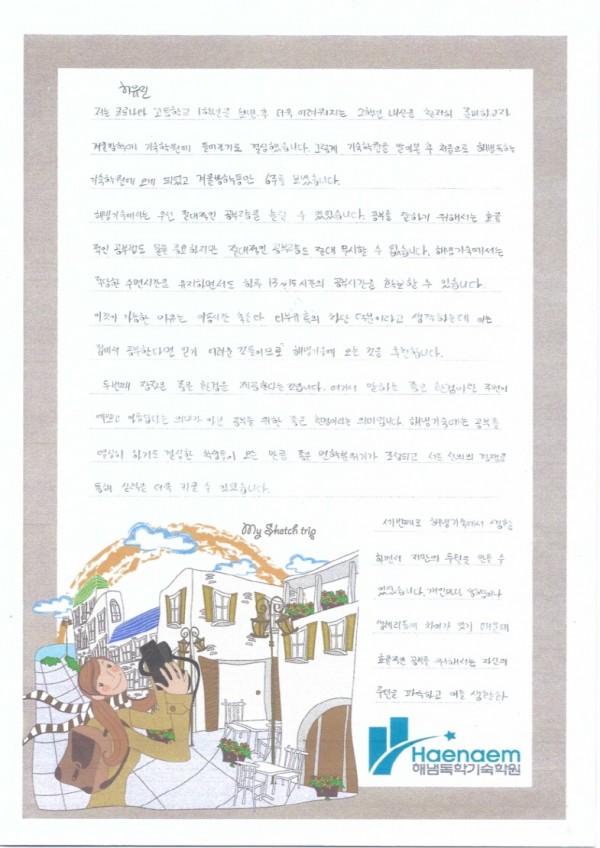 하유진
저는 고등학교 1학년을 후 더욱 어려워지는 2학년 내신을 준비하고자
겨울방학에 기숙학원에 들어오기로 결심했습니다. 그렇게 기숙학원을 알아본 후 처음으로 해냄독학
기숙학원에 오게 되었고 겨울방학동안 6주를 보냈습니다.
해냄기숙에서는 우선 절대적인 공부량을 늘릴 수 있었습니다. 공부를 잘하기 위해서는 효율
적인 공부법도 물론 중요하지만 절대적인 공부량도 절대 무시할 수 없습니다. 해냄기숙에서는
적당한 수면시간을 유지하면서도 하루 13시간의 공부시간을 확보할 수 있습니다.
이것이 가능한 이유는 이동시간 생각하는데 이는
집에서 공부한다면 얻기 어려운 것들이므로 해냄기숙에 오는 것을 추천합니다.
두번째 장점은 좋은 환경을 제공한다는 것입니다. 여기서 말하는 좋은 환경이란 주변이
예쁘고 아름답다는 의미가 아닌 공부를 위한 좋은 환경이라는 의미입니다. 해냄기숙에는 공부를
열심히 하기로 결심한 학생들이 오는 만큼 좋은 면학분위기가 조성되고 서로 선의의 경쟁을
통해 실력을 더욱 키울 수 있었습니다.
My Sketch trip
세번째로 해냄기숙에서 생활
하면서 저만의 루틴을 만들 수
있었습니다. 개인마다
차이가 있기 때문에
효율적인 공부를 위해서는 자신의
루틴을 파악하고 이를
Haenaem
해냄독학기숙학원